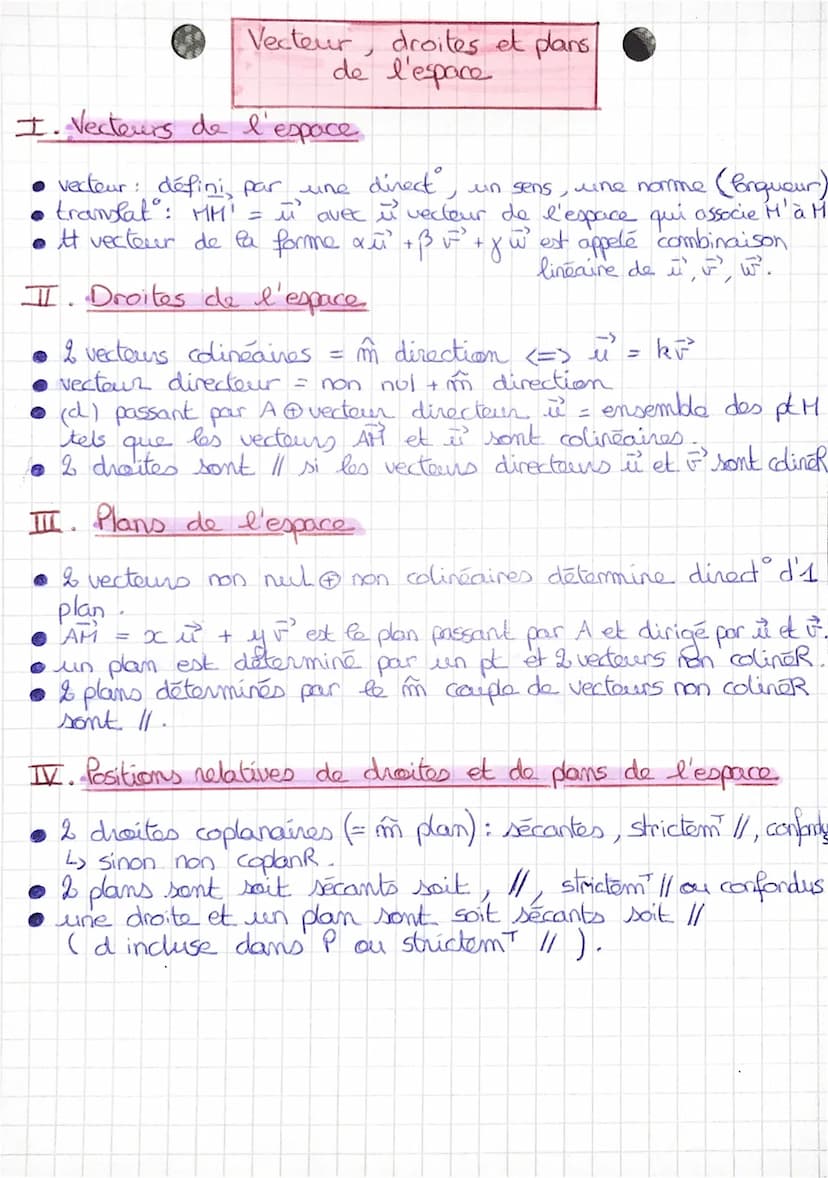 Vecteur, droites et plans
de l'espace
I. Vecteurs de l'espace
• vecteur : défini par une direct°, un sens, une norme (longueur)
• translat° : MM' = u⃗ avec u⃗ vecteur de l'espace qui associe M' à M
• tt vecteur de la forme αu⃗ + βv⃗ + γw⃗ est appelé combinaison
linéaire de u⃗, v⃗, w⃗.
II. Droites de l'espace
• 2 vecteurs colinéaires = m̂ direction <=> u⃗ = kv⃗
• vecteur directeur = non nul + m̂ direction
• (d) passant par A ⊕ vecteur directeur u⃗ = ensemble des pt M
tels que les vecteurs AM⃗ et u⃗ sont colinéaires.
• 2 droites sont // si les vecteurs directeurs u⃗ et v⃗ sont colinéR
III. Plans de l'espace
• 2 vecteurs non nul ⊕ non colinéaires détermine direct° d'1
plan.
• AM⃗ = x u⃗ + y v⃗ est le plan passant par A et dirigé par u⃗ et v⃗.
• un plan est déterminé par un pt et 2 vecteurs non colinéR.
• 2 plans déterminés par le m̂ couple de vecteurs non colinéR
sont //.
IV. Positions relatives de droites et de plans de l'espace
• 2 droites coplanaires (= m̂ plan) : sécantes, strictemᵀ //, confondu
↳ sinon non coplanR.
• 2 plans sont soit sécants soit, //, strictemᵀ // ou confondus
• une droite et un plan sont soit sécants soit //
(d incluse dans P ou strictemᵀ //).